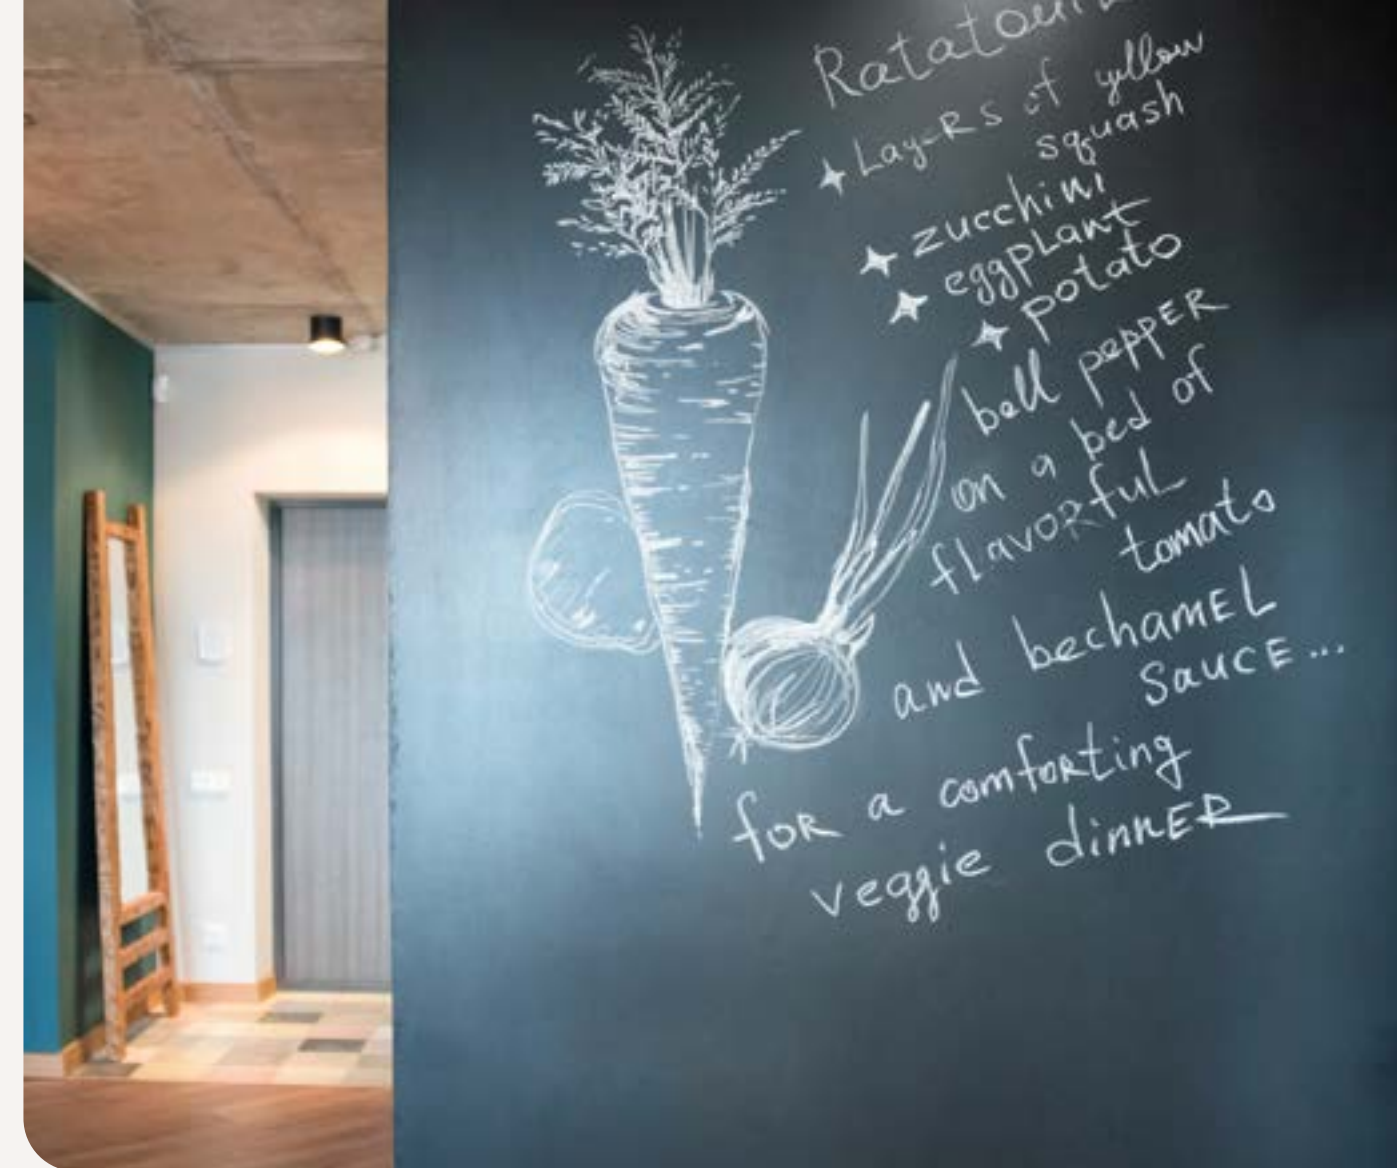 Ratatoui
Lay-RS of yellow
squash
zucchini
eggplant
potato
bell pepper
on a bed of
flavorful
tomato
and bechamel
sauce...
for a comforting
veggie dinner